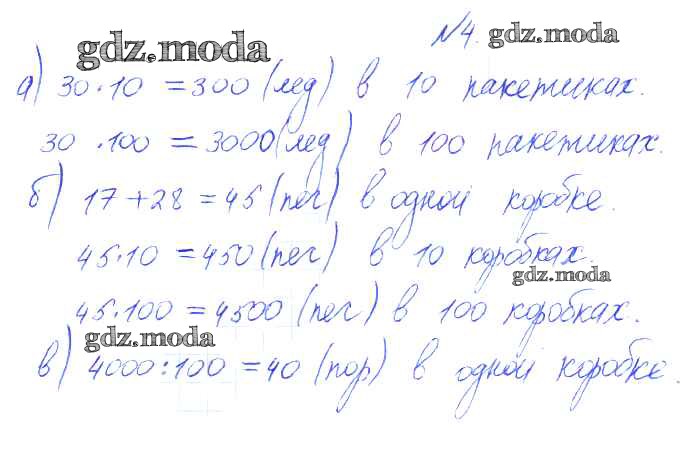 gdz.moda №4. gdz.moda
а) 30·10 = 300 (лед) в 10 пакетиках.
30 ·100 = 3000(лед) в 100 пакетиках.
б) 17+28 = 45 (пег) в одной коробке.
45·10 = 450 (пег) в 10 коробках.
gdz.moda
45·100 = 4500 (пег) в 100 коробках.
gdz.moda
в) 4000:100 = 40 (пор) в одной коробке.